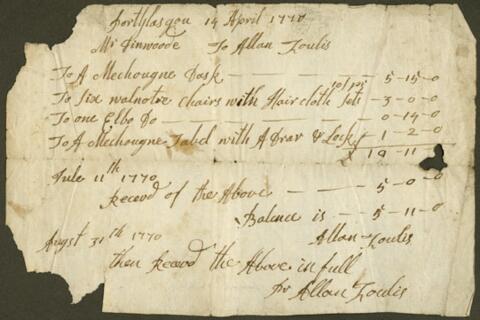 Portglasgou 14 April 1770
Mr Dinwoode To Allan Foulis
To A Mechougne Dask — — — — 5-15-0
10/ pes
To Six walnotre Chairs with Hair cloth Sets - 3-0-0
To one Elbo Do — — — — 0-14-0
To A Mechougne Tabel with A Drar & Lock 1-2-0
£ 10-11
Jule 11th 1770
Recevd of the Above — — — 5-0-0
Balance is — 5-11-0
Allan Foulis
Augst 31th 1770
then Recevd the Above in full
Pr Allan Foulis